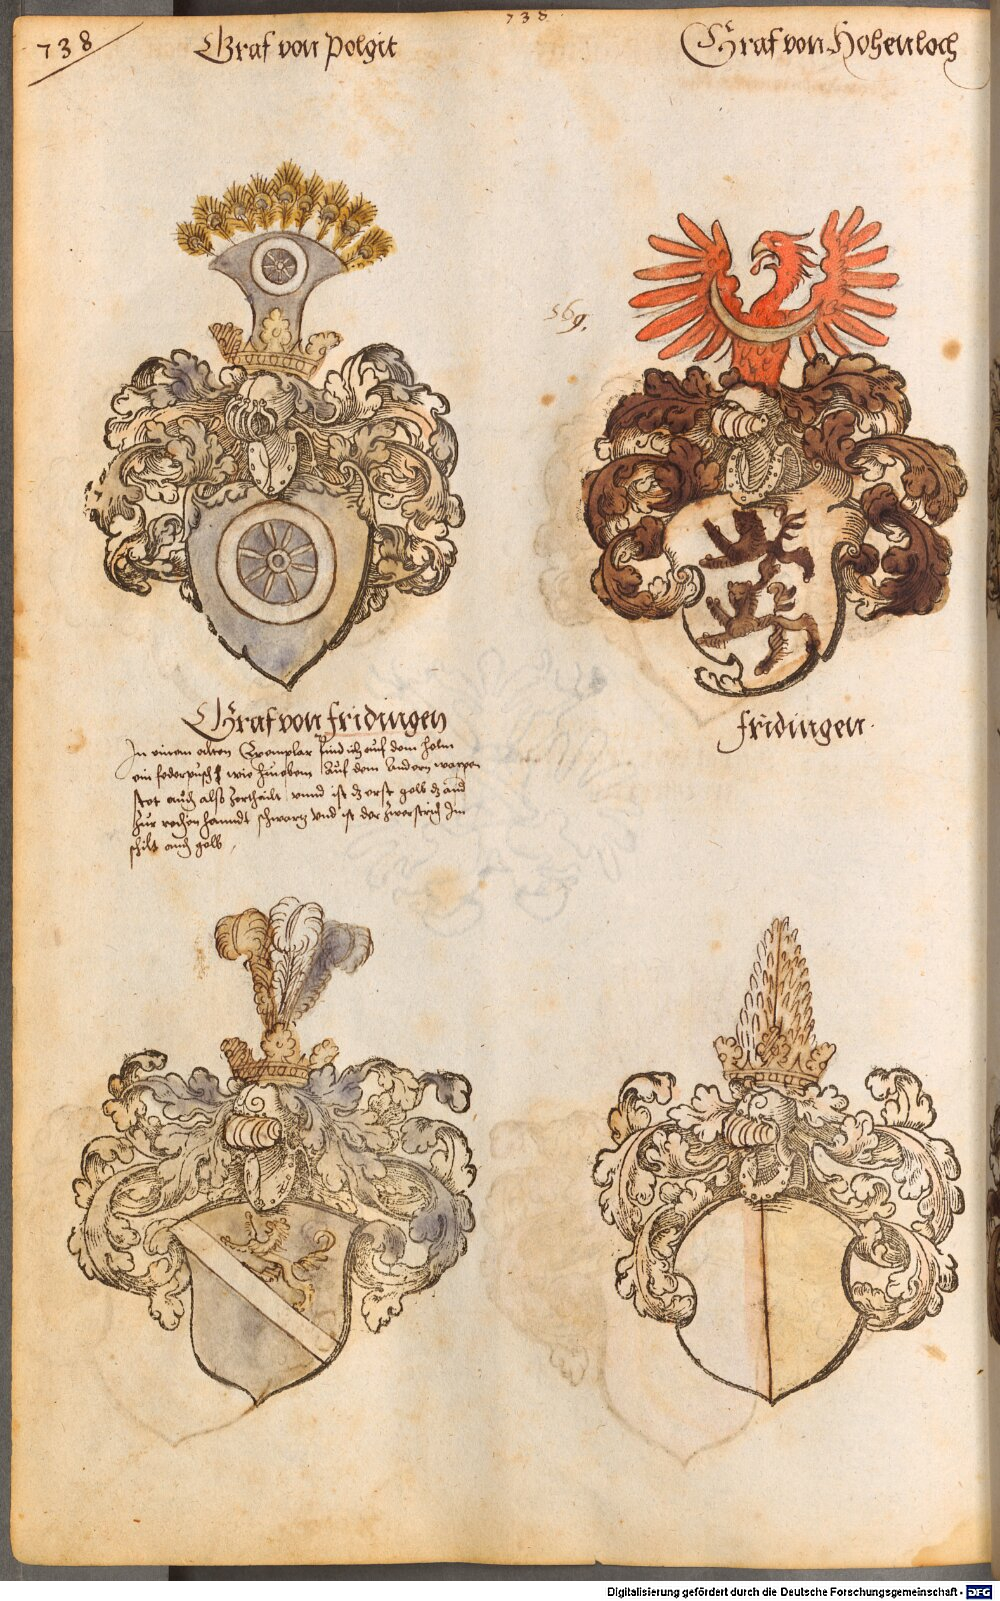 738
738.
Graf von Polgit
Graf von Hohenloch
569.
Graf von fridingen
In einem alten Exemplar find ich auf dem helm
ein federpusch wie hieoben / Auf dem Andern wappen
stet auch also zertheilt, vnnd ist dz erst gelb dz and
zur rechen hanndt schwartz vnd ist der zwerstrich Im
schilt auch gelb,
fridingen.
Digitalisierung gefördert durch die Deutsche Forschungsgemeinschaft - DFG